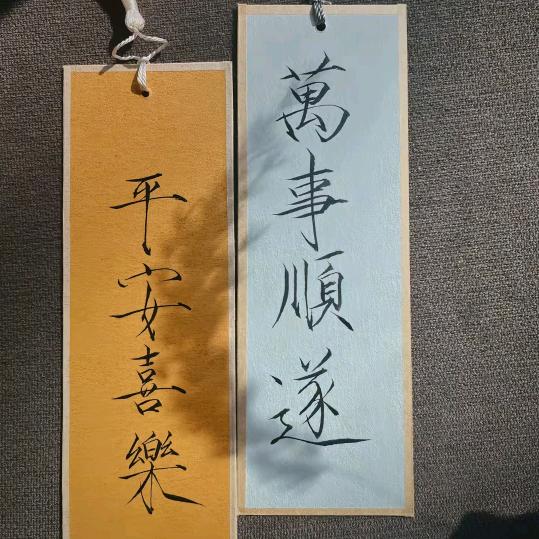 萬事順遂
平安喜樂